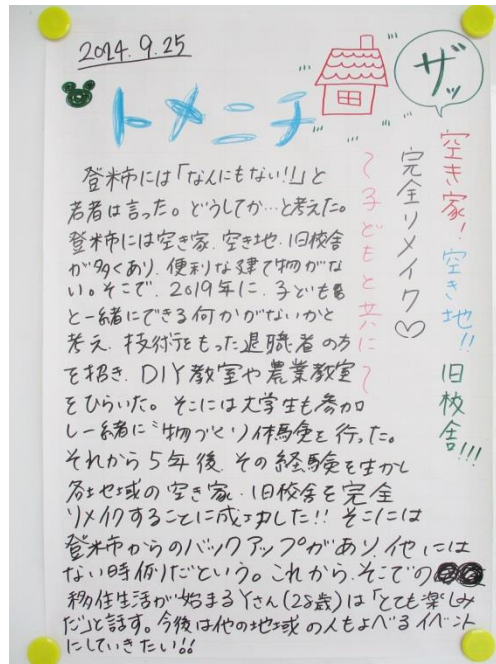 2024.9.25
トメニチ
ザッ
空き家! 空き地!! 旧校舎!!!
完全リメイク♡
~子どもと共に~
登米市には「なんにもない!」と
若者は言った。どうしてか…と考えた。
登米市には空き家、空き地、旧校舎
が多くあり、便利な建て物がな
い。そこで、2019年に、子ども
と一緒にできる何かがないかと
考え、技術をもった退職者の方
を招き、DIY教室や農業教室
をひらいた。そこには大学生も参加
し一緒に"物づくり体験を行った。
それから5年後、その経験を生かし
各地域の空き家・旧校舎を完全
リメイクすることに成功した!!そこには
登米市からのバックアップがあり、他には
ない時例だという。これから、そこでの
移住生活が始まるYさん(28歳)は「とても楽しみ
だ」と話す。今後は他の地域の人もよべるイベント
にしていきたい!!